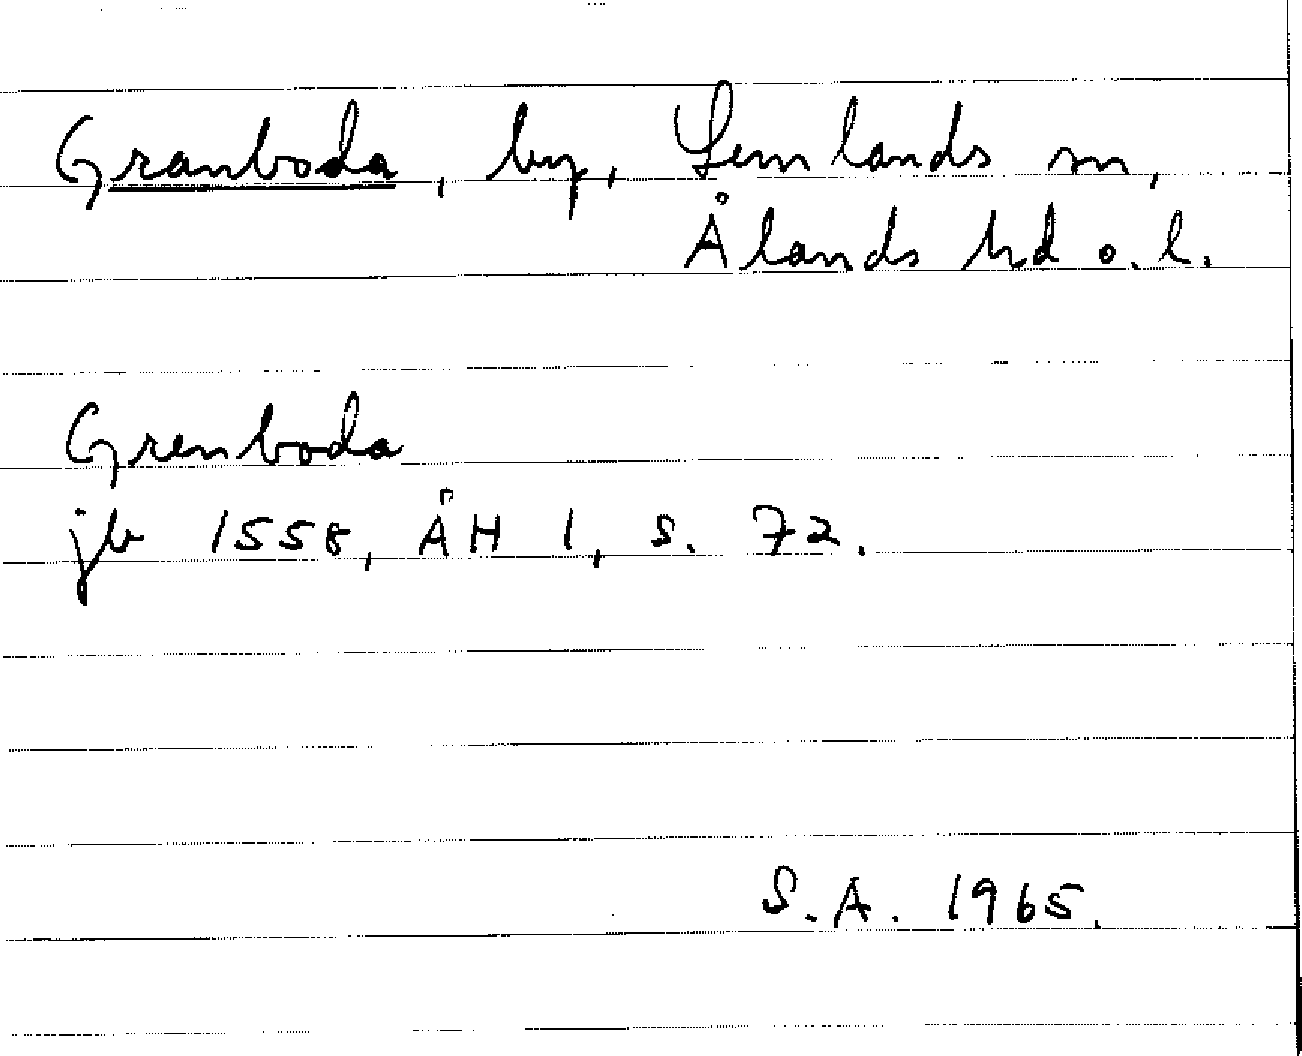 Granboda, by, Lemlands sn,
Ålands hd o. l.
Grenboda
jb 1558, ÅH 1, s. 72.
S.A. 1965.